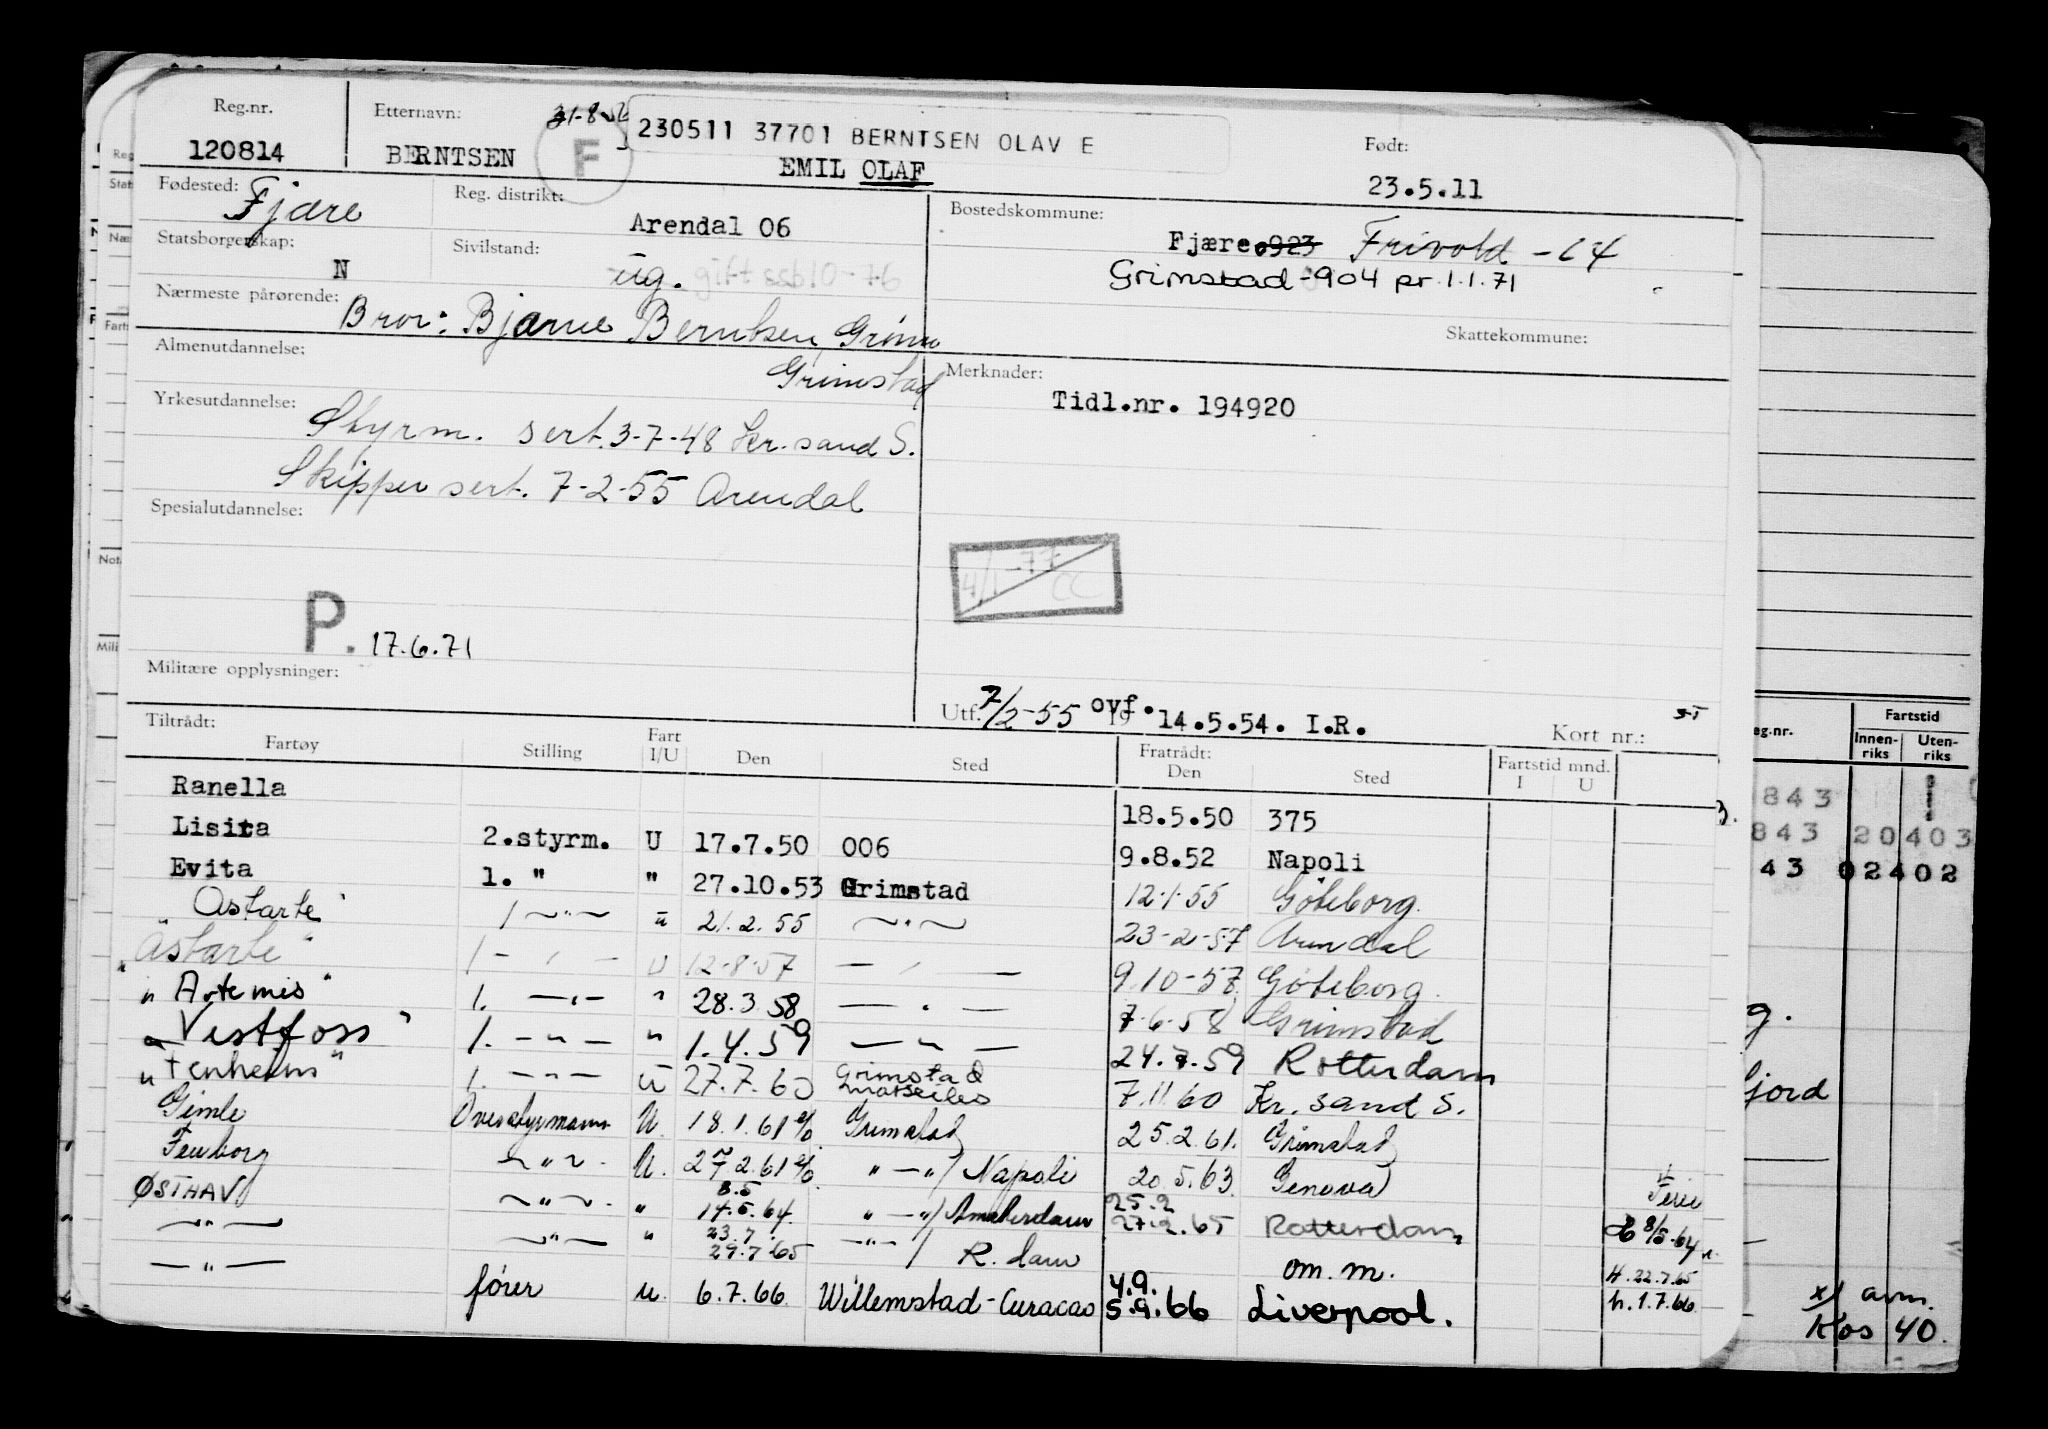 Reg.nr.
120814
Etternavn:
BERNTSEN
F
230511 37701 BERNTSEN OLAV E
EMIL OLAF
Født:
23.5.11
Fødested:
Fjære
Reg. distrikt:
Arendal 06
Bostedskommune:
Fjære 0923 Frivold - 64
Grimstad - 904 pr. 1.1.71
Statsborgerskap:
N
Sivilstand:
ug. gift ssb10-76
Nærmeste pårørende:
Bror: Bjarne Berntsen, Grimm
Grimstad
Skattekommune:
Almenutdannelse:
Merknader:
Tidl.nr. 194920
Yrkesutdannelse:
Styrm. sert. 3-7-48 Kr. sand S.
Skipper sert. 7-2-55 Arendal
Spesialutdannelse:
4/1-77
CC
P. 17.6.71
Militære opplysninger:
Utf. 7/2-55 19 ovf. 14.5.54. I.R.
Kort nr.:
Tiltrådt:
Fartøy Stilling Fart I/U Den Sted
Fratrådt:
Den Sted
Fartstid mnd.
I U
Ranella 18.5.50 375
Lisita 2.styrm. U 17.7.50 006 9.8.52 Napoli
Evita 1. " " 27.10.53 Grimstad 12-1-55 Göteborg.
"Astarte" 1 ~"~ " 21.2.55 ~"~ 23-2-57 Arendal
"Astarte" 1 - " - U 12-8-57 — " — 9.10-57 Göteborg.
"Artemis" 1. — " — " 28.3.58 — " — 7-6-58 Grimstad
"Vestfoss" 1. — " — " 1.4.59 — " — 24.7.59 Rotterdam
"Tenheim" 1. — " — U 27.7.60 Grimstad
Marseilles 7.11.60 Kr. sand S.
Gimle Overstyrmann U. 18.1.61 Grimstad 25.2.61. Grimstad
Fenborg ~"~. U. 27.2.61 " — " / Napoli 20.5.63. Genova
Ferie
8.5
ØSTHAV ~"~. " 14.5.64. " — " / Amsterdam 25.2
27.2.65 Rotterdam 8/5.64
23.7.
— " — ~"~ " 29.7.65 — " — / R. dam om. m. H. 22.7.65
— " — fører U. 6.7.66. Willemstad - Curacao 4.9.
5.9.66 Liverpool. h. 1.7.66
eg.nr.
Fartstid
Innen-
riks
Uten-
riks
843
843 20403
43 02402
g.
fjord
x/ avm.
Kos 40.